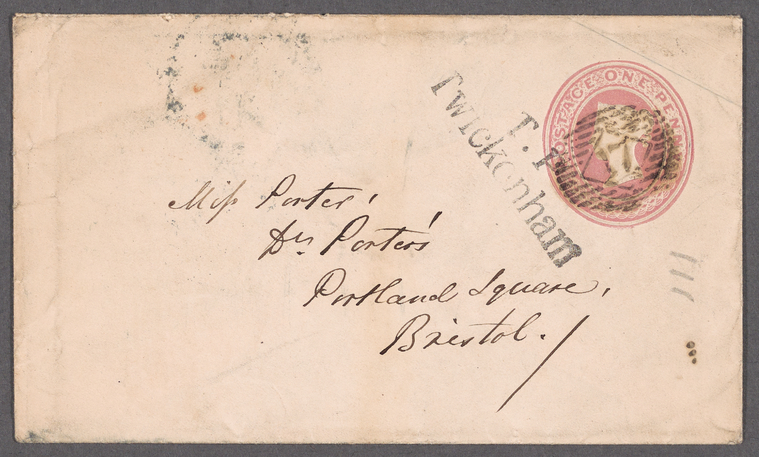 POSTAGE ONE PENNY
T. P
Twickenham
Miss Porter,
Dr. Porter's
Portland Square,
Bristol.